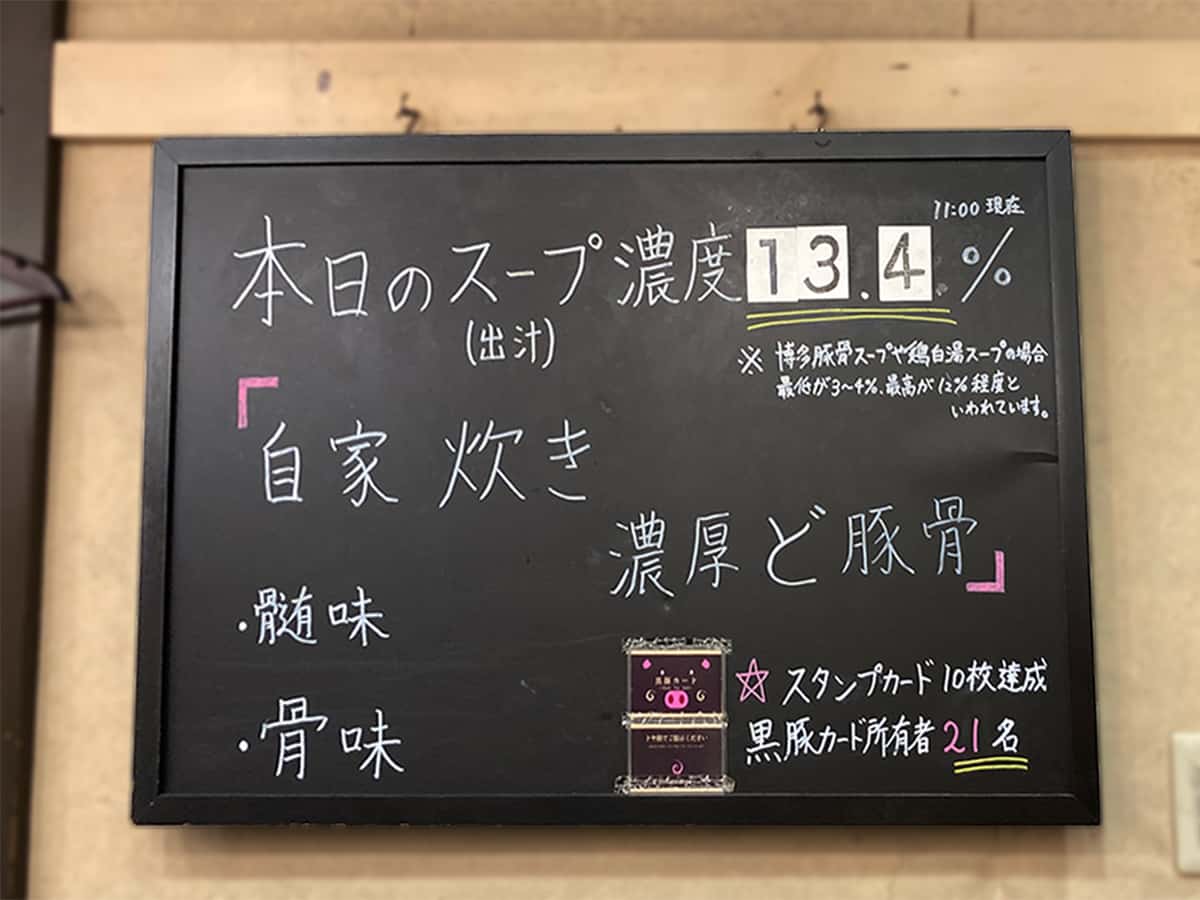 11:00 現在
本日のスープ濃度 13.4%
(出汁)
※ 博多豚骨スープや鶏白湯スープの場合
最低が3〜4%、最高が12%程度と
いわれています。
「自家炊き
濃厚ど豚骨」
・髄味
・骨味
黒豚カード
☆ スタンプカード10枚達成
黒豚カード所有者21名